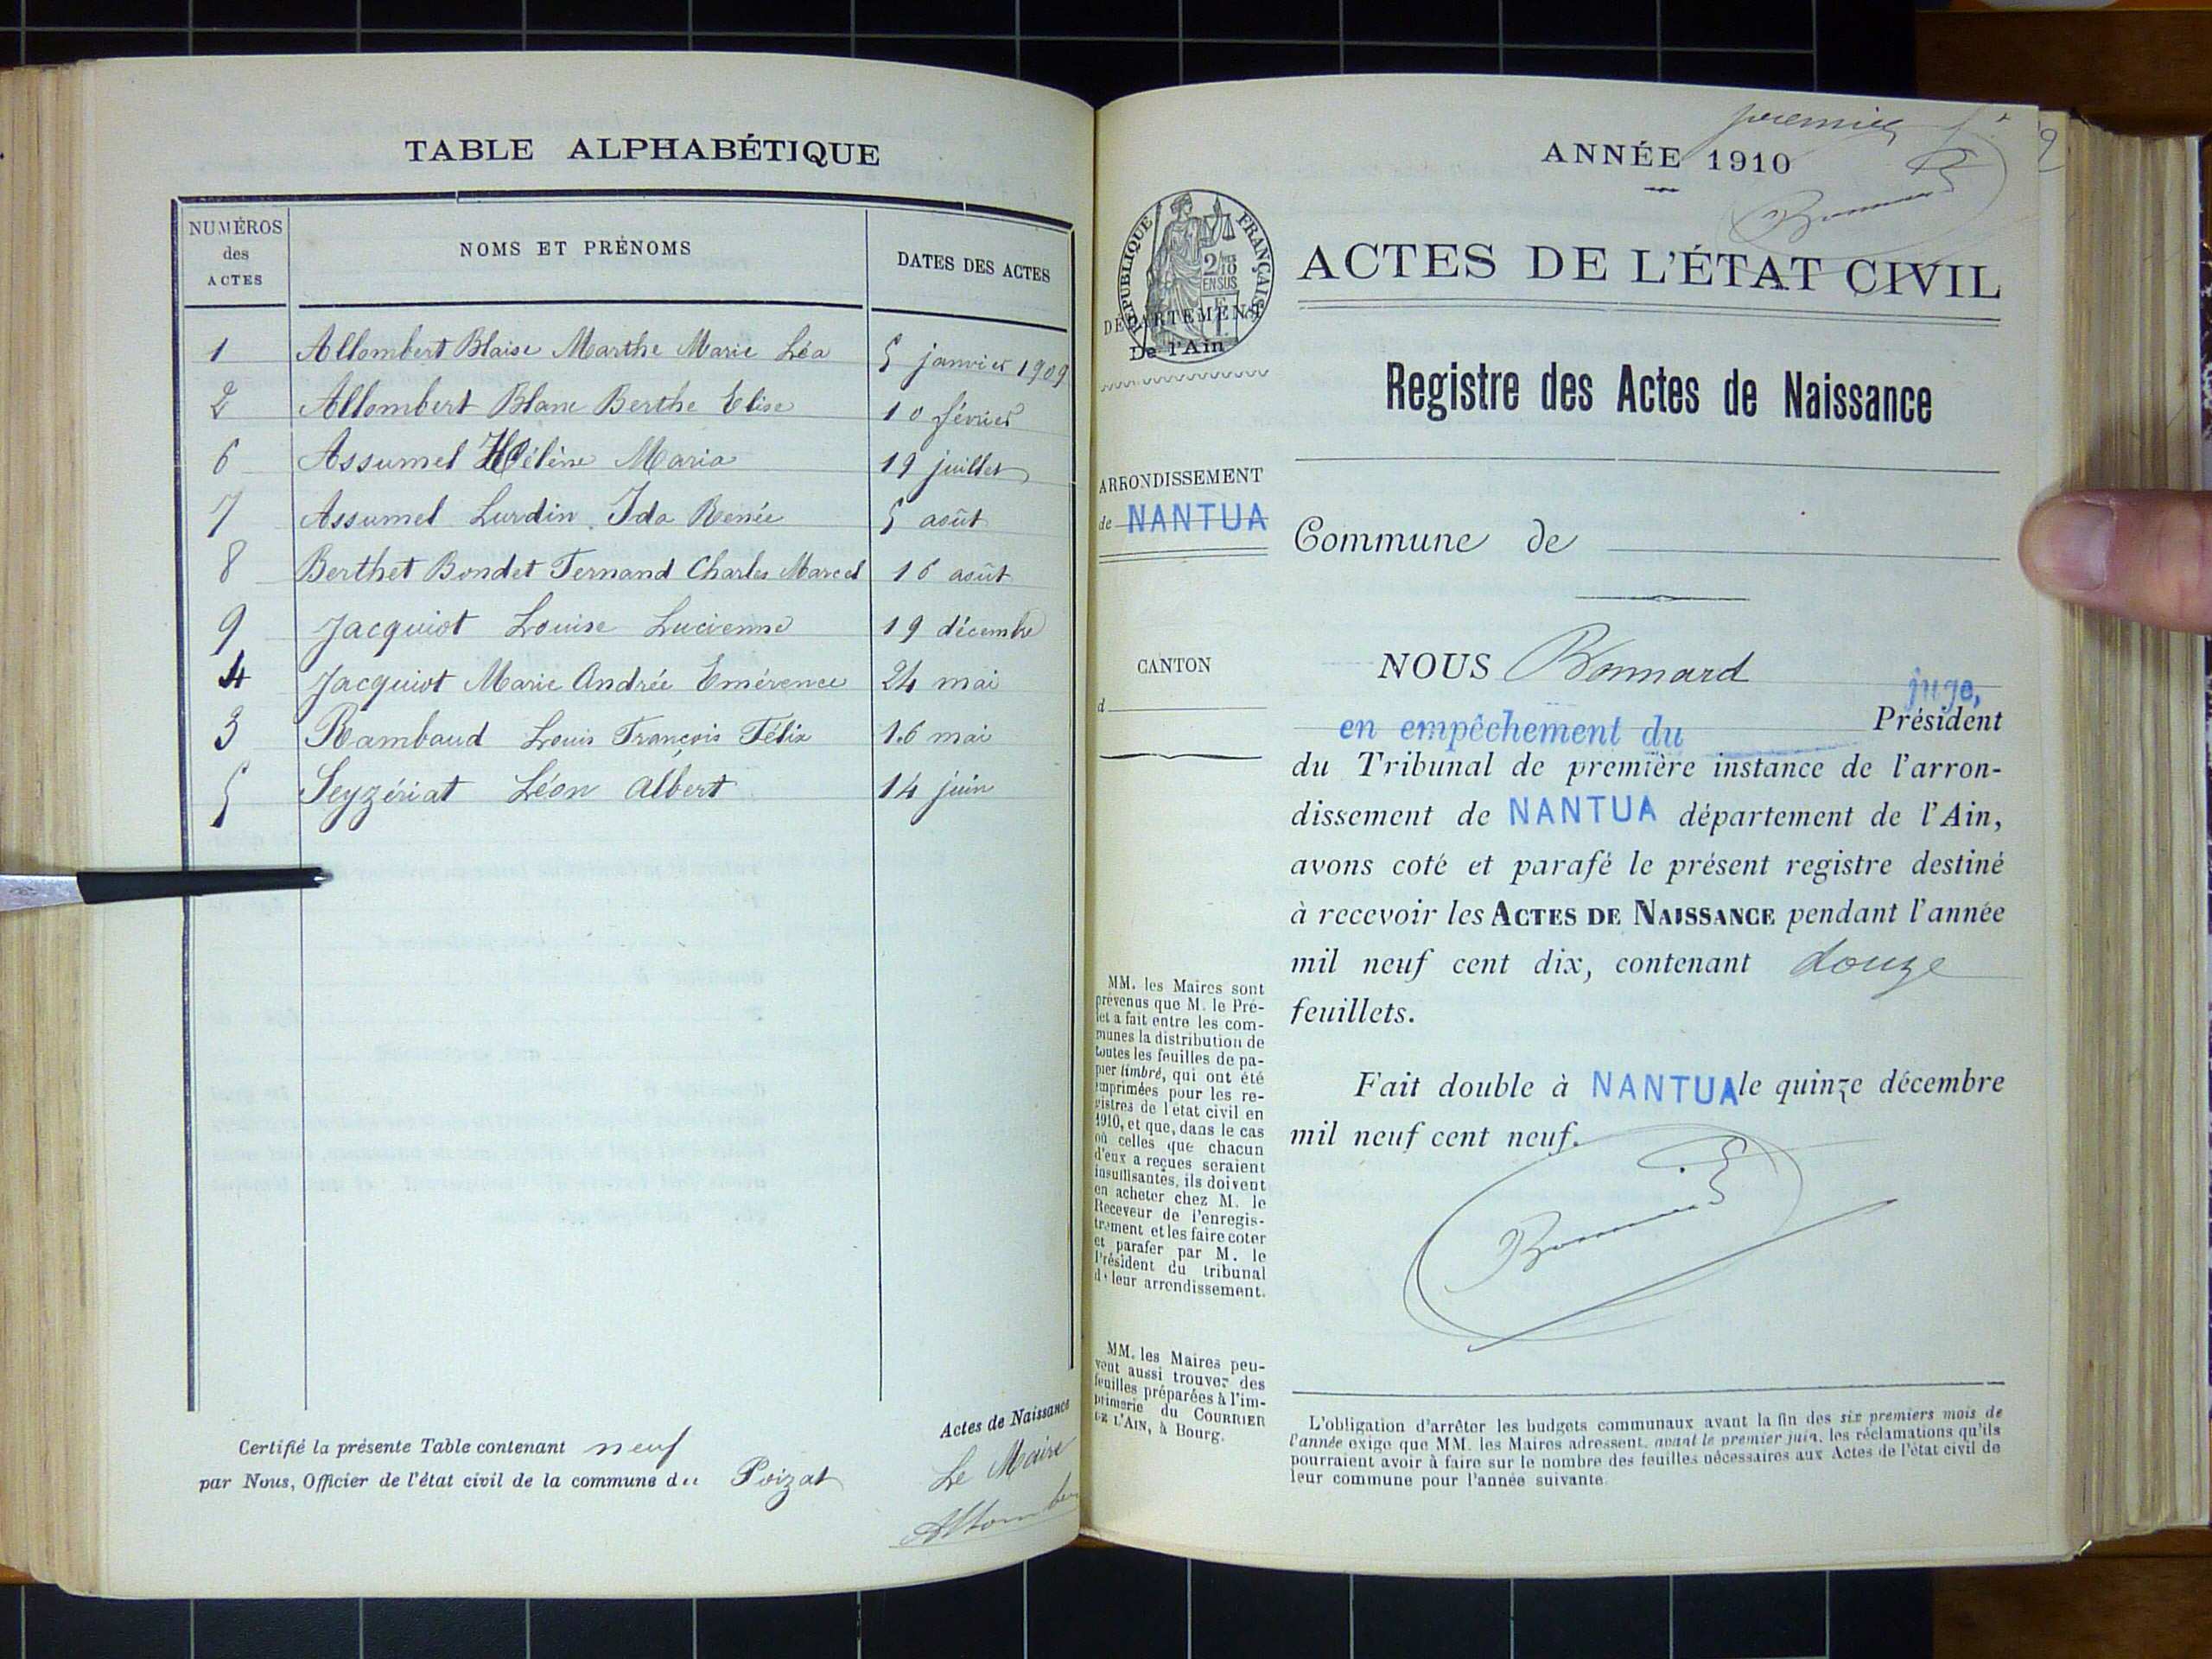 TABLE ALPHABÉTIQUE
NUMÉROS des ACTES NOMS ET PRÉNOMS DATES DES ACTES
1 Allombert Blaise Marthe Marie Léa 5 janvier 1909
2 Allombert Blanc Berthe Elise 10 février
6 Assumel Hélène Maria 19 juillet
7 Assumel Lurdin Ida Renée 5 août
8 Berthet Bondet Fernand Charles Marcel 16 août
9 Jacquiot Louise Lucienne 19 décembre
4 Jacquiot Marie Andrée Emérence 24 mai
3 Rambaud Louis François Félix 16 mai
5 Seyzériat Léon Albert 14 juin
Certifié la présente Table contenant neuf Actes de Naissance
par Nous, Officier de l'état civil de la commune du Poizat
Le Maire
premier
ANNÉE 1910
RÉPUBLIQUE FRANÇAISE
2/10 EN SUS
DÉPARTEMENT
De l'Ain
ACTES DE L'ÉTAT CIVIL
Registre des Actes de Naissance
ARRONDISSEMENT
de NANTUA
Commune de
CANTON
d
NOUS Bonnard juge,
en empêchement du Président
du Tribunal de première instance de l'arron-
dissement de NANTUA département de l'Ain,
avons coté et parafé le présent registre destiné
à recevoir les ACTES DE NAISSANCE pendant l'année
mil neuf cent dix, contenant douze
feuillets.
Fait double à NANTUA le quinze décembre
mil neuf cent neuf.
MM. les Maires sont
prévenus que M. le Pré-
fet a fait entre les com-
munes la distribution de
toutes les feuilles de pa-
pier timbré, qui ont été
imprimées pour les re-
gistres de l'état civil en
1910, et que, dans le cas
où celles que chacun
d'eux a reçues seraient
insuffisantes, ils doivent
en acheter chez M. le
Receveur de l'enregis-
trement et les faire coter
et parafer par M. le
Président du tribunal
de leur arrondissement.
MM. les Maires peu-
vent aussi trouver des
feuilles préparées à l'im-
primerie du COURRIER
DE L'AIN, à Bourg.
L'obligation d'arrêter les budgets communaux avant la fin des six premiers mois de
l'année exige que MM. les Maires adressent, avant le premier juin, les réclamations qu'ils
pourraient avoir à faire sur le nombre des feuilles nécessaires aux Actes de l'état civil de
leur commune pour l'année suivante.